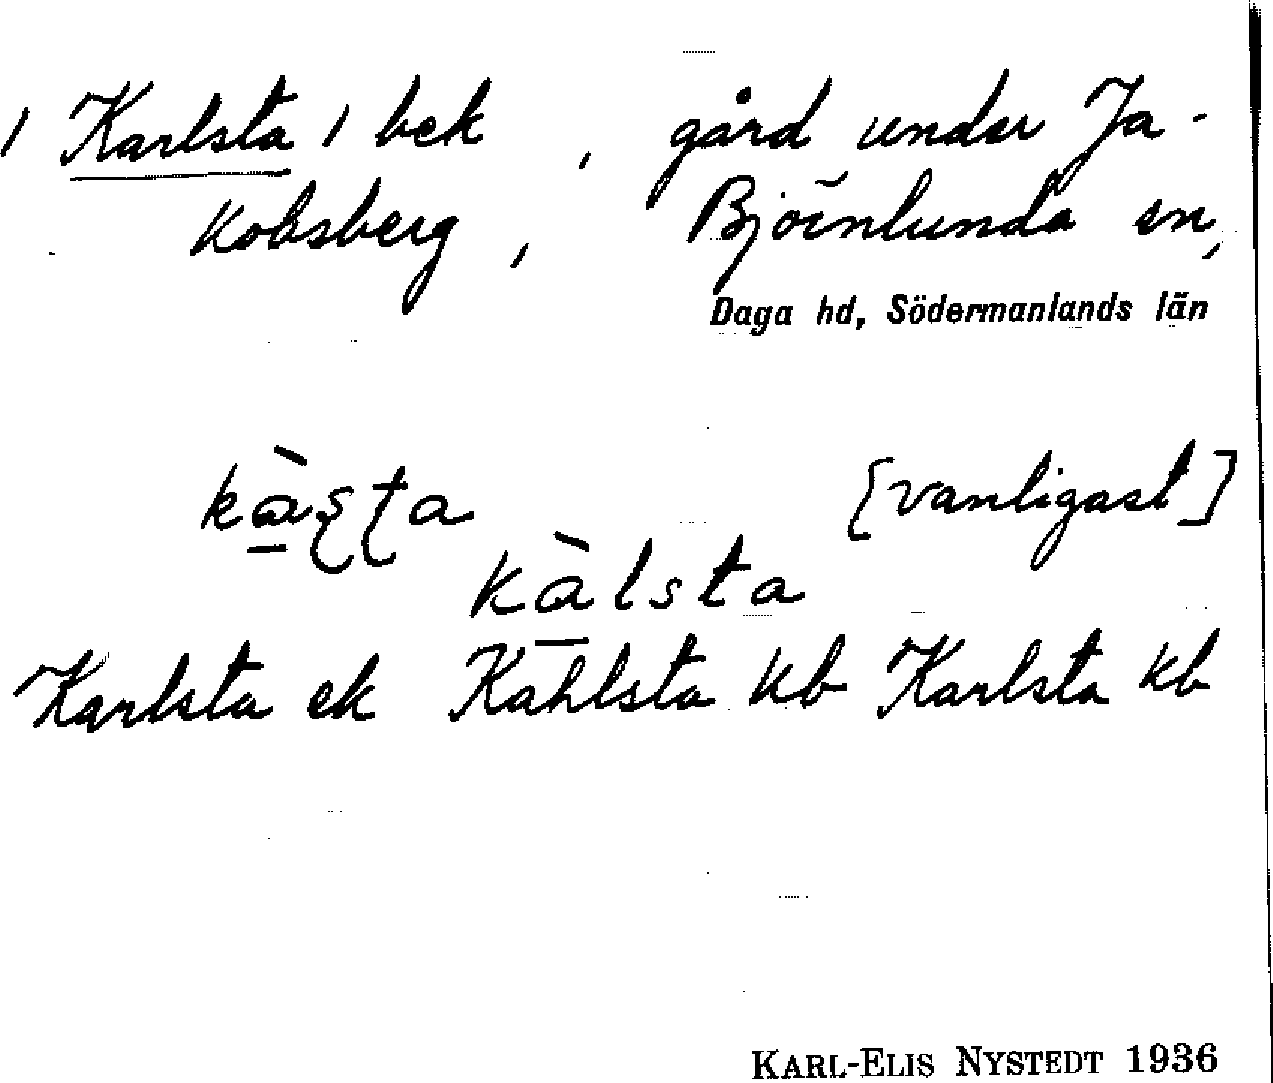 / Karlsta / bek , gård under Ja-
kobsberg , Björnlunda sn,
Daga hd, Södermanlands län
kà̱ʂʈa [vanligast]
kà̱lsta
Karlsta ek Kahlsta kb Karlsta kb
KARL-ELIS NYSTEDT 1936